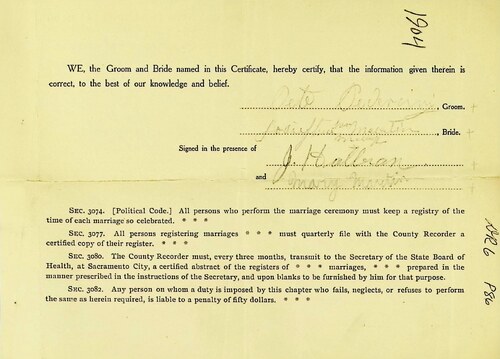 1904
WE, the Groom and Bride named in this Certificate, hereby certify, that the information given therein is
correct, to the best of our knowledge and belief.
Pete, Groom.
, Bride.
Signed in the presence of
J. Hallman
and
Mary Martin
SEC. 3074. [Political Code.] All persons who perform the marriage ceremony must keep a registry of the
time of each marriage so celebrated. * * *
SEC. 3077. All persons registering marriages * * * must quarterly file with the County Recorder a
a certified copy of their register. * * *
SEC. 3080. The County Recorder must, every three months, transmit to the Secretary of the State Board of
Health, at Sacramento City, a certified abstract of the registers of * * * marriages, * * * prepared in the
manner prescribed in the instructions of the Secretary, and upon blanks to be furnished by him for that purpose.
SEC. 3082. Any person on whom a duty is imposed by this chapter who fails, neglects, or refuses to perform
the same as herein required, is liable to a penalty of fifty dollars. * * *
P86